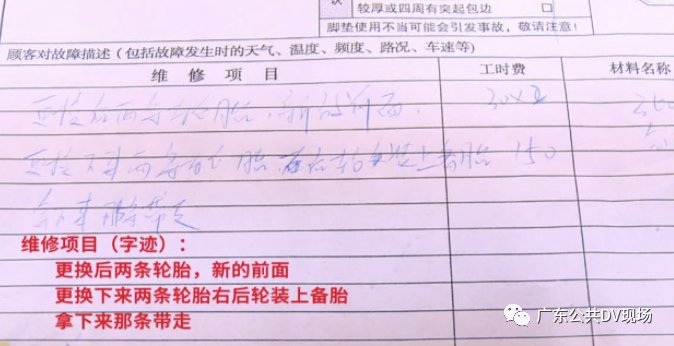 较厚或四周有突起包边 □
脚垫使用不当可能会引发事故，敬请注意！
顾客对故障描述（包括故障发生时的天气、温度、频度、路况、车速等）
维修项目 工时费 材料名称
更换后两条轮胎，新的前面. 30X2
更换下来两条轮胎 右后轮装上备胎 150
拿下来那条带走
维修项目（字迹）：
更换后两条轮胎，新的前面
更换下来两条轮胎右后轮装上备胎
拿下来那条带走
广东公共DV现场